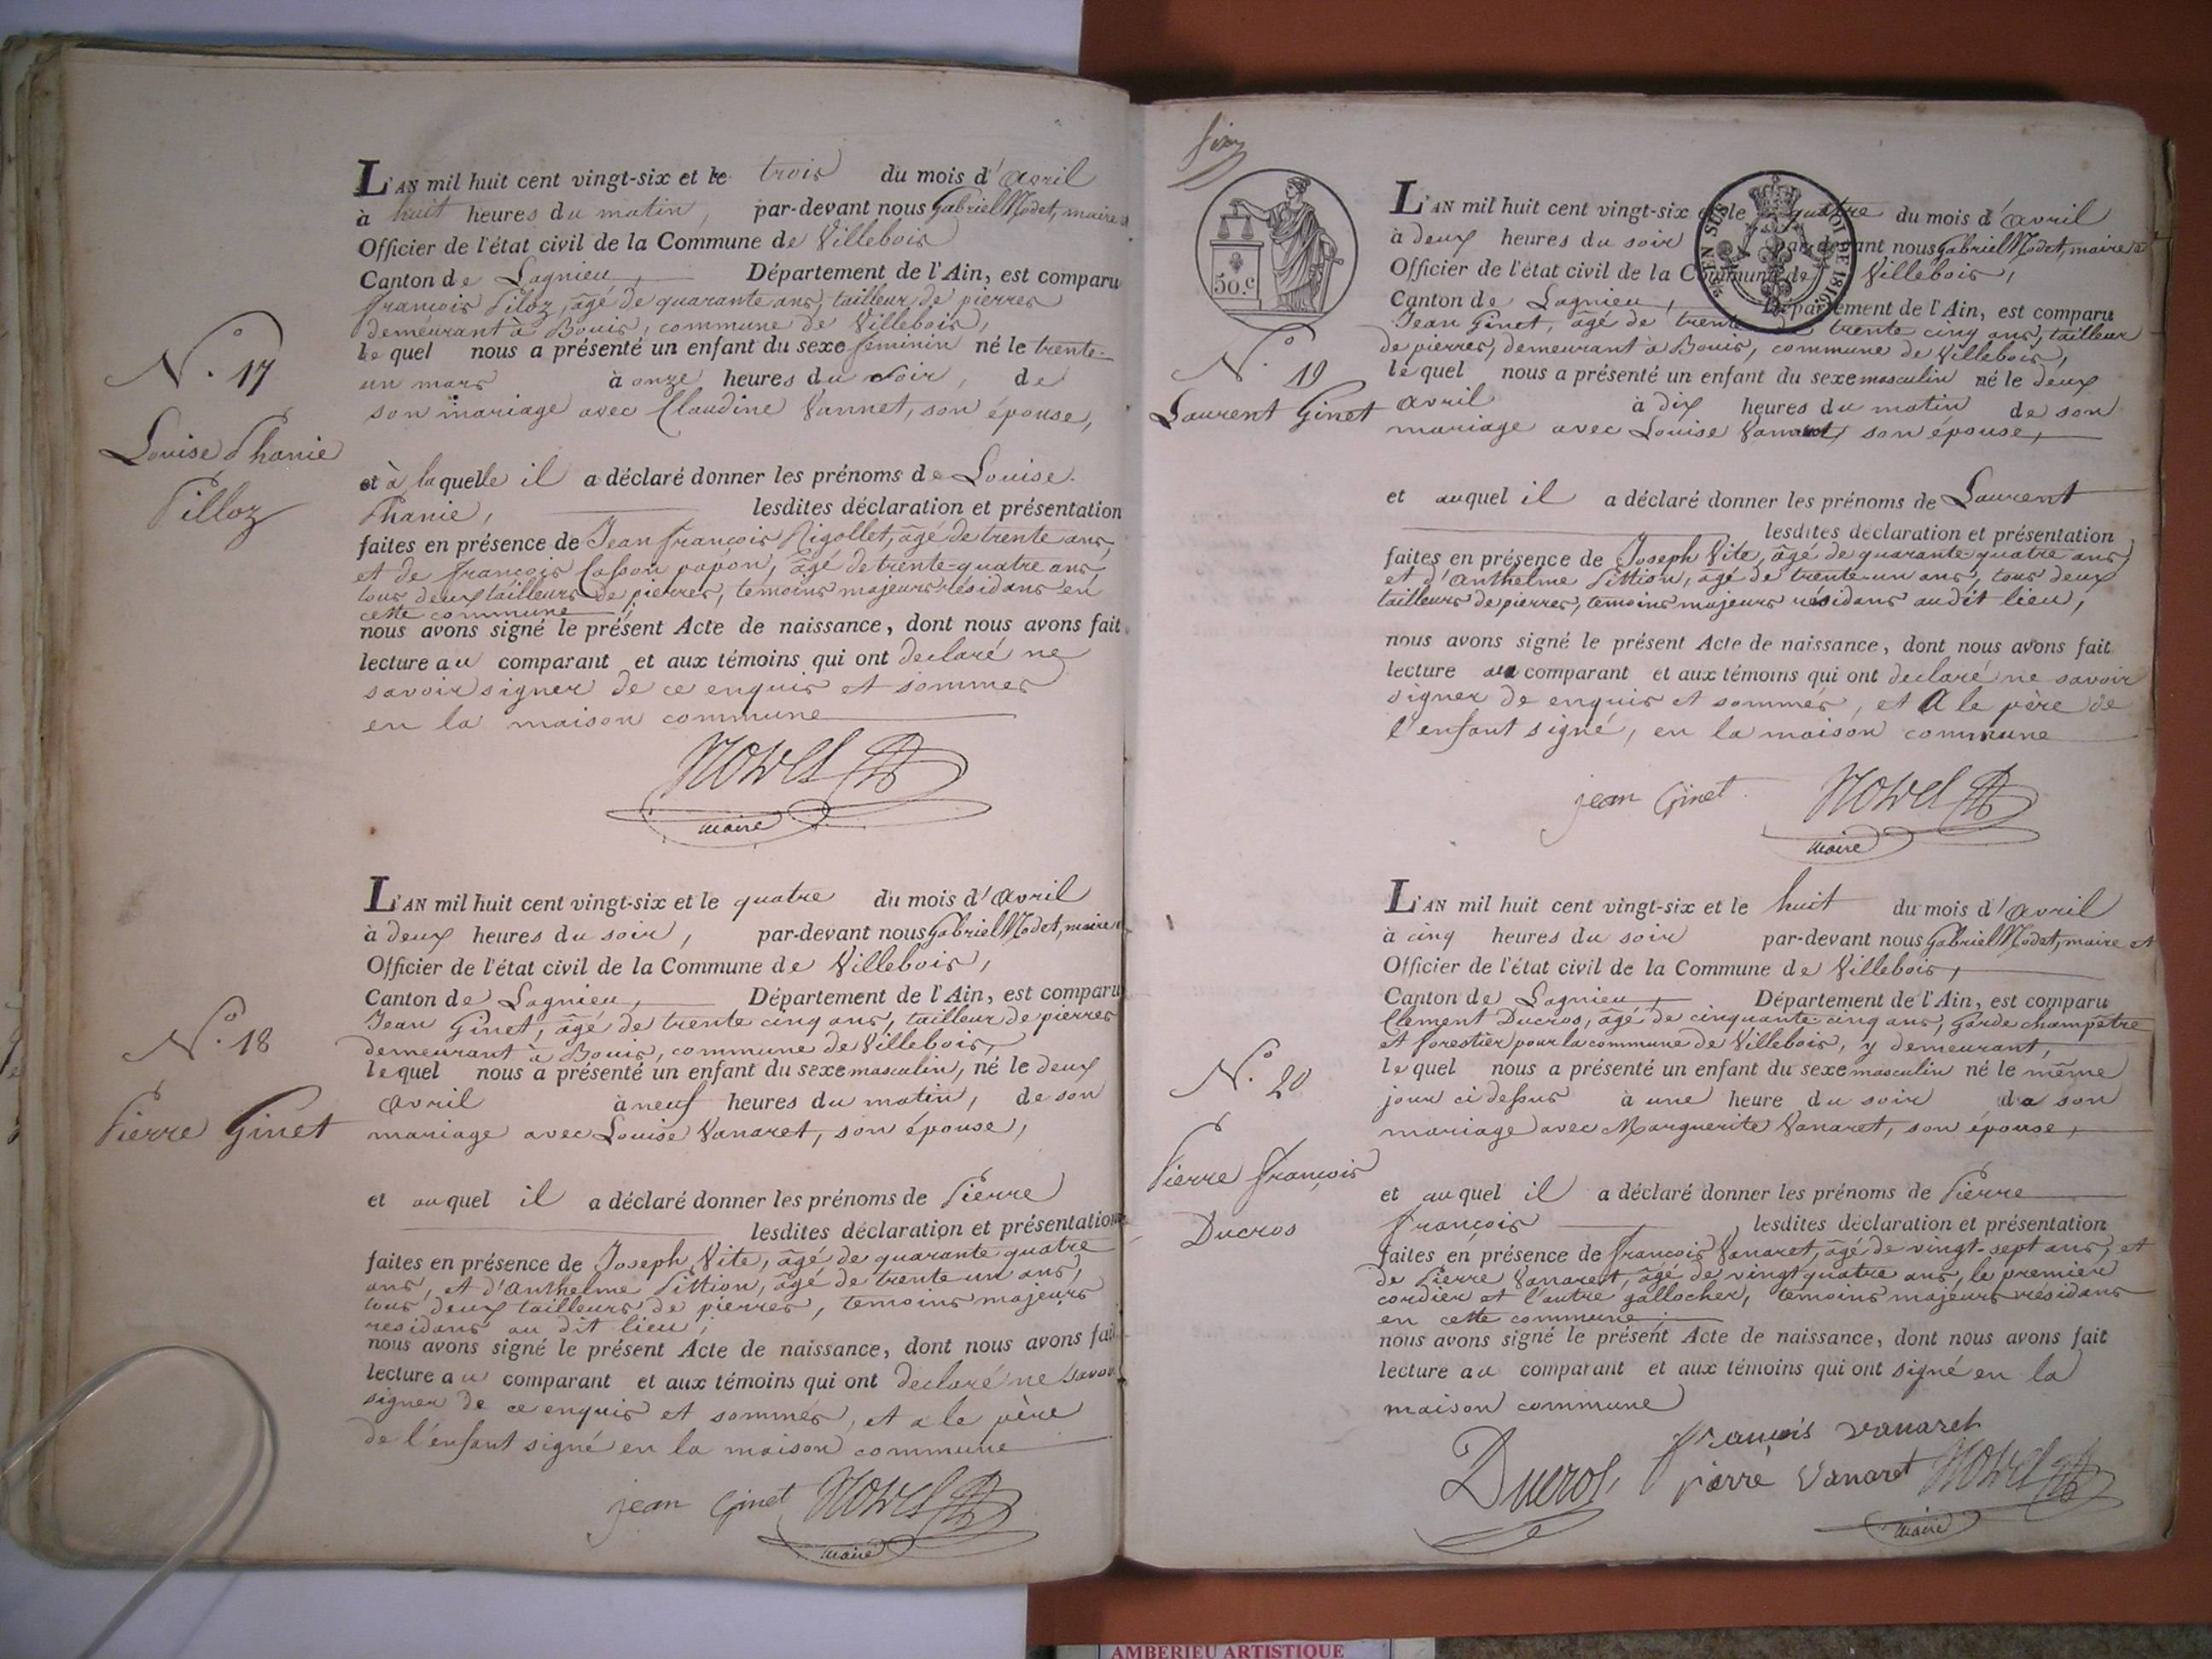 L'AN mil huit cent vingt-six et le trois du mois d'avril
à huit heures du matin, par-devant nous Gabriel Modet, maire
Officier de l'état civil de la Commune de Villebois
Canton de Lagnieu, Département de l'Ain, est comparu
françois Piloz, âgé de quarante ans, tailleur de pierres
demeurant à Bouis, commune de Villebois,
lequel nous a présenté un enfant du sexe féminin né le trente-
un mars à onze heures du soir, de
son mariage avec Claudine Vannet, son épouse,
et à laquelle il a déclaré donner les prénoms de Louise
Phanie, lesdites déclaration et présentation
faites en présence de Jean françois Rigollet, âgé de trente ans,
et de françois Casson papon, âgé de trente-quatre ans,
tous deux tailleurs de pierres, témoins majeurs résidans en
cette commune,
nous avons signé le présent Acte de naissance, dont nous avons fait
lecture au comparant et aux témoins qui ont declaré ne
savoir signer de ce enquis et sommés
en la maison commune
maire
N.o 17
Louise Phanie
Pilloz
L'AN mil huit cent vingt-six et le quatre du mois d'avril
à deux heures du soir, par-devant nous Gabriel Modet, maire
Officier de l'état civil de la Commune de Villebois,
Canton de Lagnieu, Département de l'Ain, est comparu
Jean Ginet, âgé de trente cinq ans, tailleur de pierres
demeurant à Bouis, commune de Villebois,
lequel nous a présenté un enfant du sexe masculin, né le deux
avril à neuf heures du matin, de son
mariage avec Louise Vanaret, son épouse,
et auquel il a déclaré donner les prénoms de Pierre
lesdites déclaration et présentation
faites en présence de Joseph Vite, âgé de quarante quatre
ans, et d'Anthelme Pittion, âgé de trente un ans,
tous deux tailleurs de pierres, temoins majeurs
residans au dit lieu;
nous avons signé le présent Acte de naissance, dont nous avons fait
lecture au comparant et aux témoins qui ont declaré ne savoir
signer de ce enquis et sommés, et a le père
de l'enfant signé en la maison commune
jean Ginet
maire
N.o 18
Pierre Ginet
50.c
L'AN mil huit cent vingt-six et le quatre du mois d'avril
à deux heures du soir par-devant nous Gabriel Modet, maire
Officier de l'état civil de la Commune de Villebois,
Canton de Lagnieu, Département de l'Ain, est comparu
Jean Ginet, âgé de trente trente cinq ans, tailleur
de pierres, demeurant à Bouis, commune de Villebois,
lequel nous a présenté un enfant du sexe masculin né le deux
avril à dix heures du matin de son
mariage avec Louise son épouse,
et auquel il a déclaré donner les prénoms de Laurent
lesdites déclaration et présentation
faites en présence de Joseph Vite, âgé de quarante-quatre ans,
et d'Anthelme Pittion, âgé de trente-un ans, tous deux
tailleurs de pierres, temoins majeurs résidans audit lieu,
nous avons signé le présent Acte de naissance, dont nous avons fait
lecture au comparant et aux témoins qui ont declaré ne savoir
signer de enquis et sommés, et A le père de
l'enfant signé, en la maison commune
jean Ginet
maire
N.o 19
Laurent Ginet
L'AN mil huit cent vingt-six et le huit du mois d'avril
à cinq heures du soir par-devant nous Gabriel Modet, maire et
Officier de l'état civil de la Commune de Villebois,
Canton de Lagnieu, Département de l'Ain, est comparu
Clement Ducros, âgé de cinquante-cinq ans, garde champêtre
et forestier pour la commune de Villebois, y demeurant,
lequel nous a présenté un enfant du sexe masculin né le même
jour ci dessus à une heure du soir de son
mariage avec Marguerite Vanaret, son épouse,
et auquel il a déclaré donner les prénoms de Pierre
françois lesdites déclaration et présentation
faites en présence de françois Vanaret, âgé de vingt-sept ans, et
de Pierre Vanaret, âgé de vingt quatre ans, le premier
cordier et l'autre gallocher, temoins majeurs résidans
en cette commune,
nous avons signé le présent Acte de naissance, dont nous avons fait
lecture au comparant et aux témoins qui ont signé en la
maison commune
françois vanaret
Ducros pierre Vanaret
maire
N.o 20
Pierre françois
Ducros
AMBERIEU ARTISTIQUE